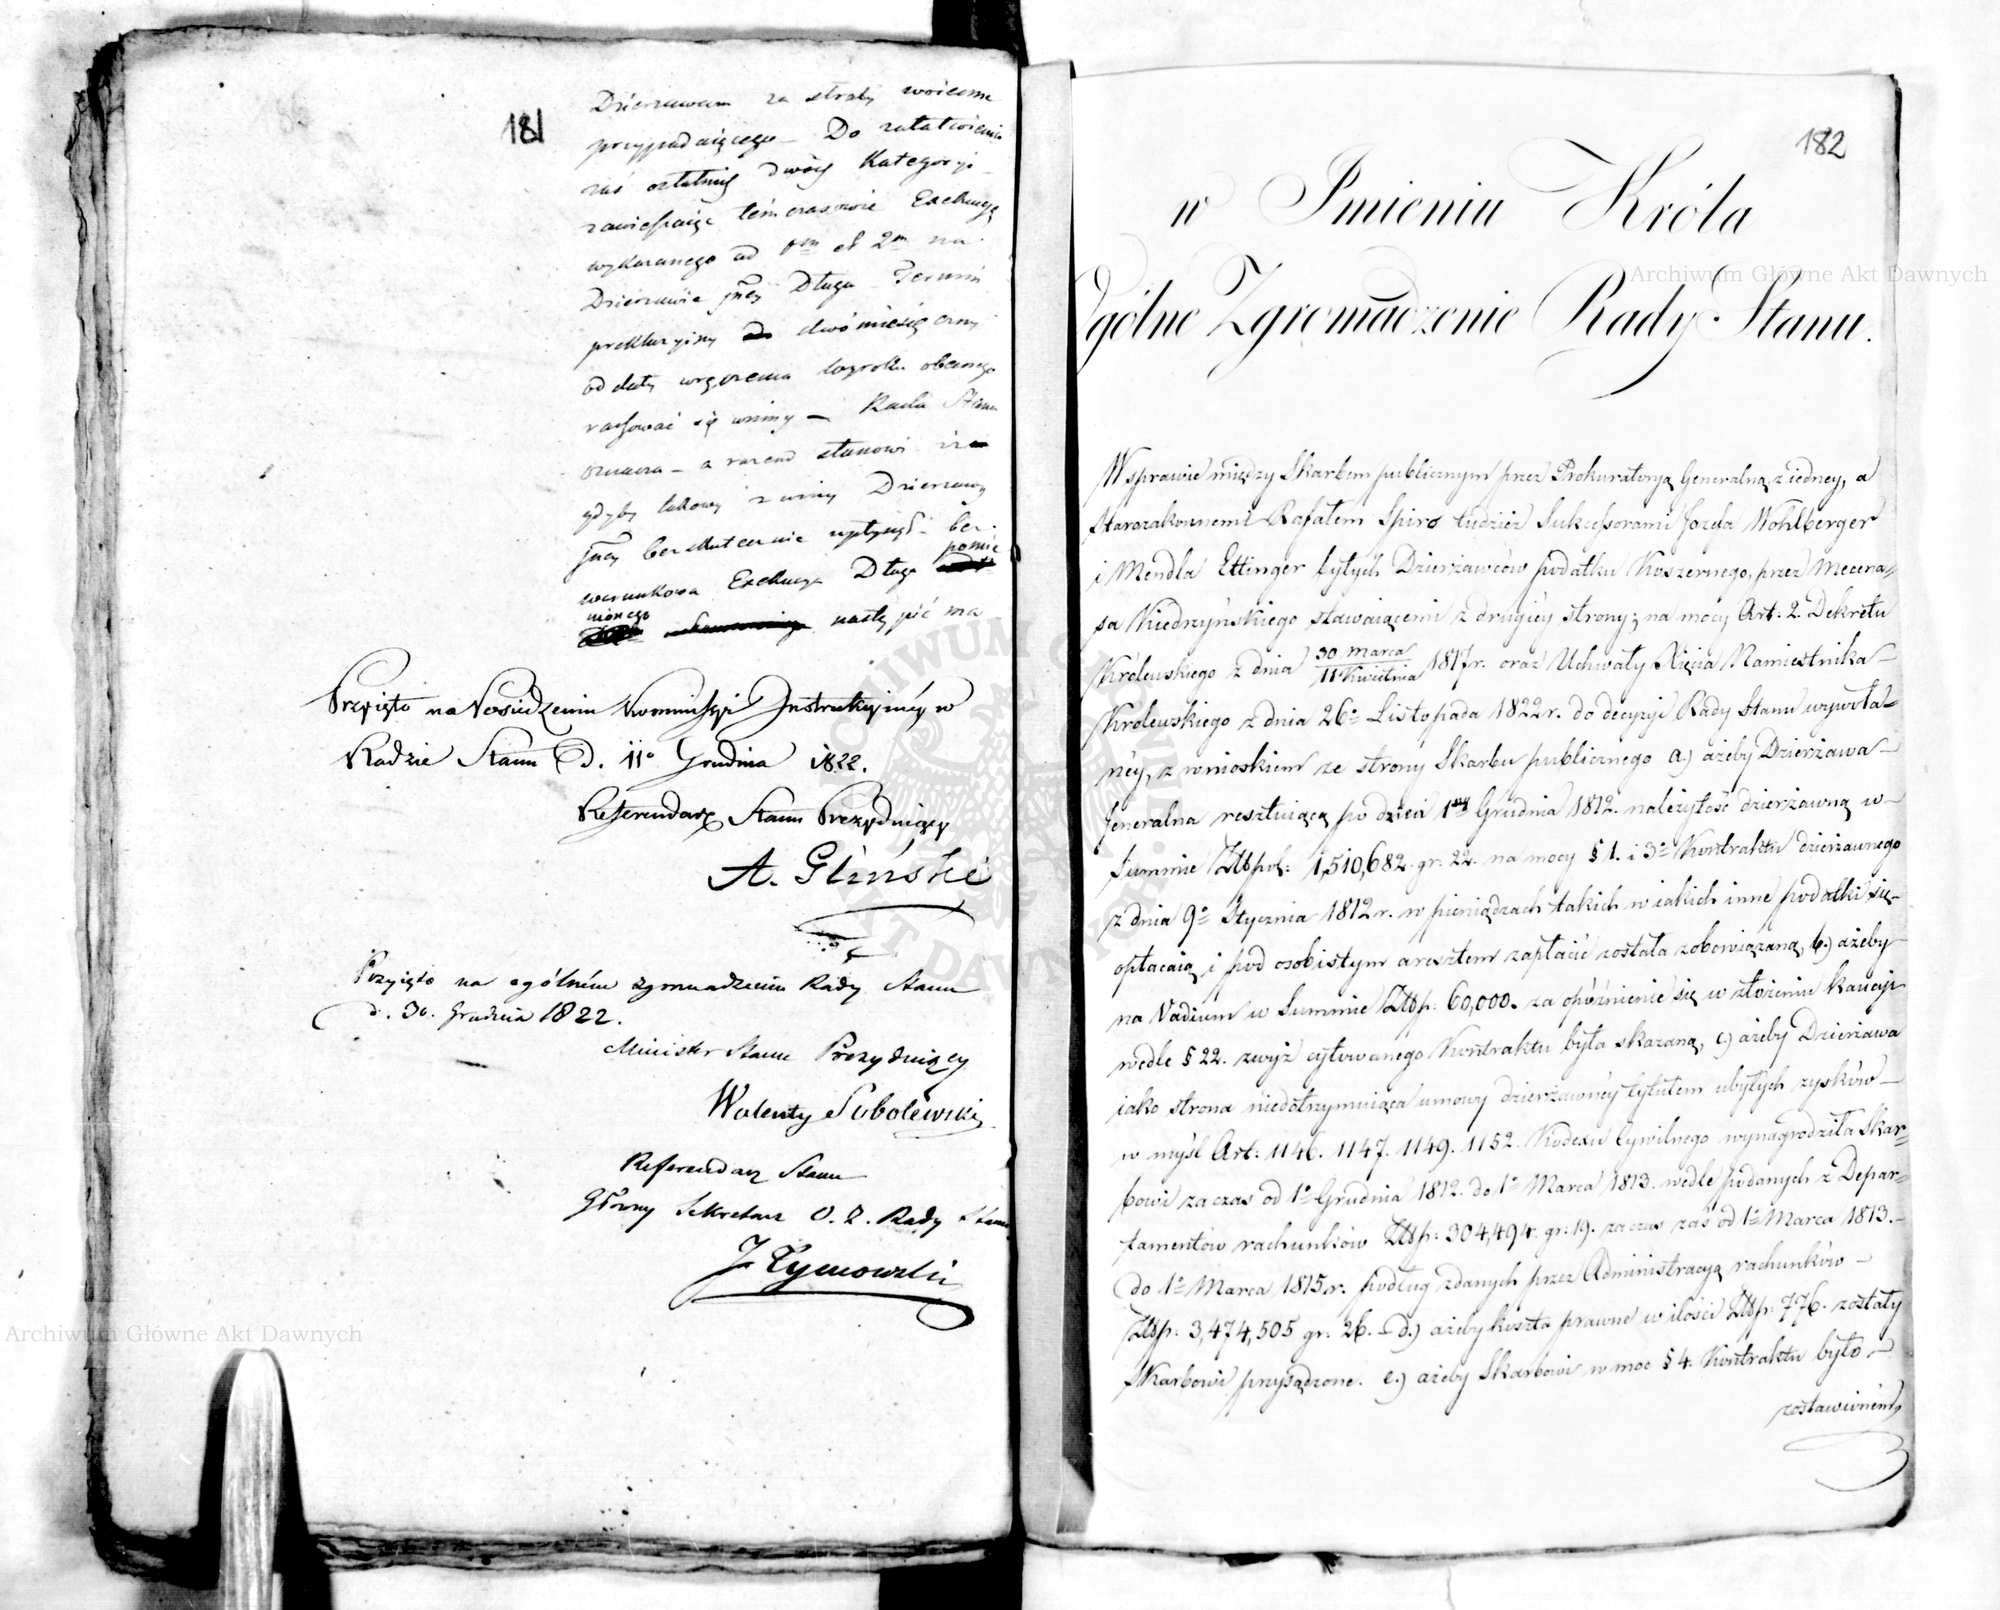 181
Dzierzawcom za straty woienne
przypadaiącego – Do załatwienia
zaś ostatnich dwóch Kategoryi
zawieszaiąc tém czasowie Exekucyą
wykazanego ad 1m et 2m na
Dzierzawie Długu Termin
prekluzyiny dwómiesięczny
od daty wręczenia wyroku obecnego
rachować się winny – Rada Stanu
oznacza – a razem stanowi iż
gdyby takowy z winy Dzierzawy
bezskutecznie upłynął bez-
warunkowa Exekucya Długu pomie
nionego nastąpić ma
Przyięto na Posiedzeniu Kommissyi Instrukcyinéy w
Radzie Stanu d. 11o Grudnia 1822.
Referendarz Stanu Prezyduiący
A. Gliński
Przyięto na ogólném zgromadzeniu Rady Stanu
d. 30. Grudnia 1822.
Minister Stanu Prezyduiący
Walenty Sobolewski
Referendarz Stanu
Główny Sekretarz O. Z. Rady Stanu
J. Tymowski
182
w Imieniu Króla
Ogólne Zgromadzenie Rady Stanu.
W sprawie między Skarbem publicznym przez Prokuratoryą Generalną z iedney, a
Starozakonnemi Rafałem Spiro tudzież Sukcessorami Jozefa Wohlberger
i Mendla Ettinger byłych Dzierżawców podatku Koszernego, przez Mecena=
sa Kiedrzyńskiego stawaiącemi z drugiéy strony; na mocy Art: 2. Dekretu
Królewskiego z dnia 30 marca / 11 Kwietnia 1817 r. oraz Uchwały Xięcia Namiestnika
Królewskiego z dnia 26o Listopada 1822 r. do decyzyi Rady Stanu wywoła=
néy, z wnioskiem ze strony Skarbu publicznego a.) ażeby Dzierżawa
Generalna resztuiącą po dzień 1szy Grudnia 1812. należytość dzierżawną w
Summie Złłpol: 1,510,682. gr. 22. na mocy § 1. i 3o Kontraktu dzierżawnego
z dnia 9o Stycznia 1812 r. w pieniądzach takich w iakich inne podatki się
opłacaią i pod osobistym aresztem zapłacić została zobowiązaną, b.) ażeby
na Vadium w Summie Złłp: 60,000. za opóźnienie się w złożeniu kaucyi
wedle § 22. zwyż cytowanego Kontraktu była skazaną, c.) ażeby Dzierżawa
iako strona niedotrzymuiąca umowy dzierżawnéy tytułem ubyłych zysków
w myśl Art: 1146. 1147. 1149. 1152. Kodexu Cywilnego wynagrodziła Skar=
bowi za czas od 1o Grudnia 1812. do 1o Marca 1813. wedle podanych z Depar=
tamentów rachunków Złłp: 304,494. gr: 19. za czas zaś od 1o Marca 1813.
do 1o Marca 1815 r. podług zdanych przez Administracyą rachunków
Złłp: 3,474,505 gr: 26. – d.) ażeby koszta prawne w ilości Złłp: 776. zostały
Skarbowi przysądzone. e.) ażeby Skarbowi w moc § 4. Kontraktu było
zostawioném
Archiwum Główne Akt Dawnych
Archiwum Główne Akt Dawnych